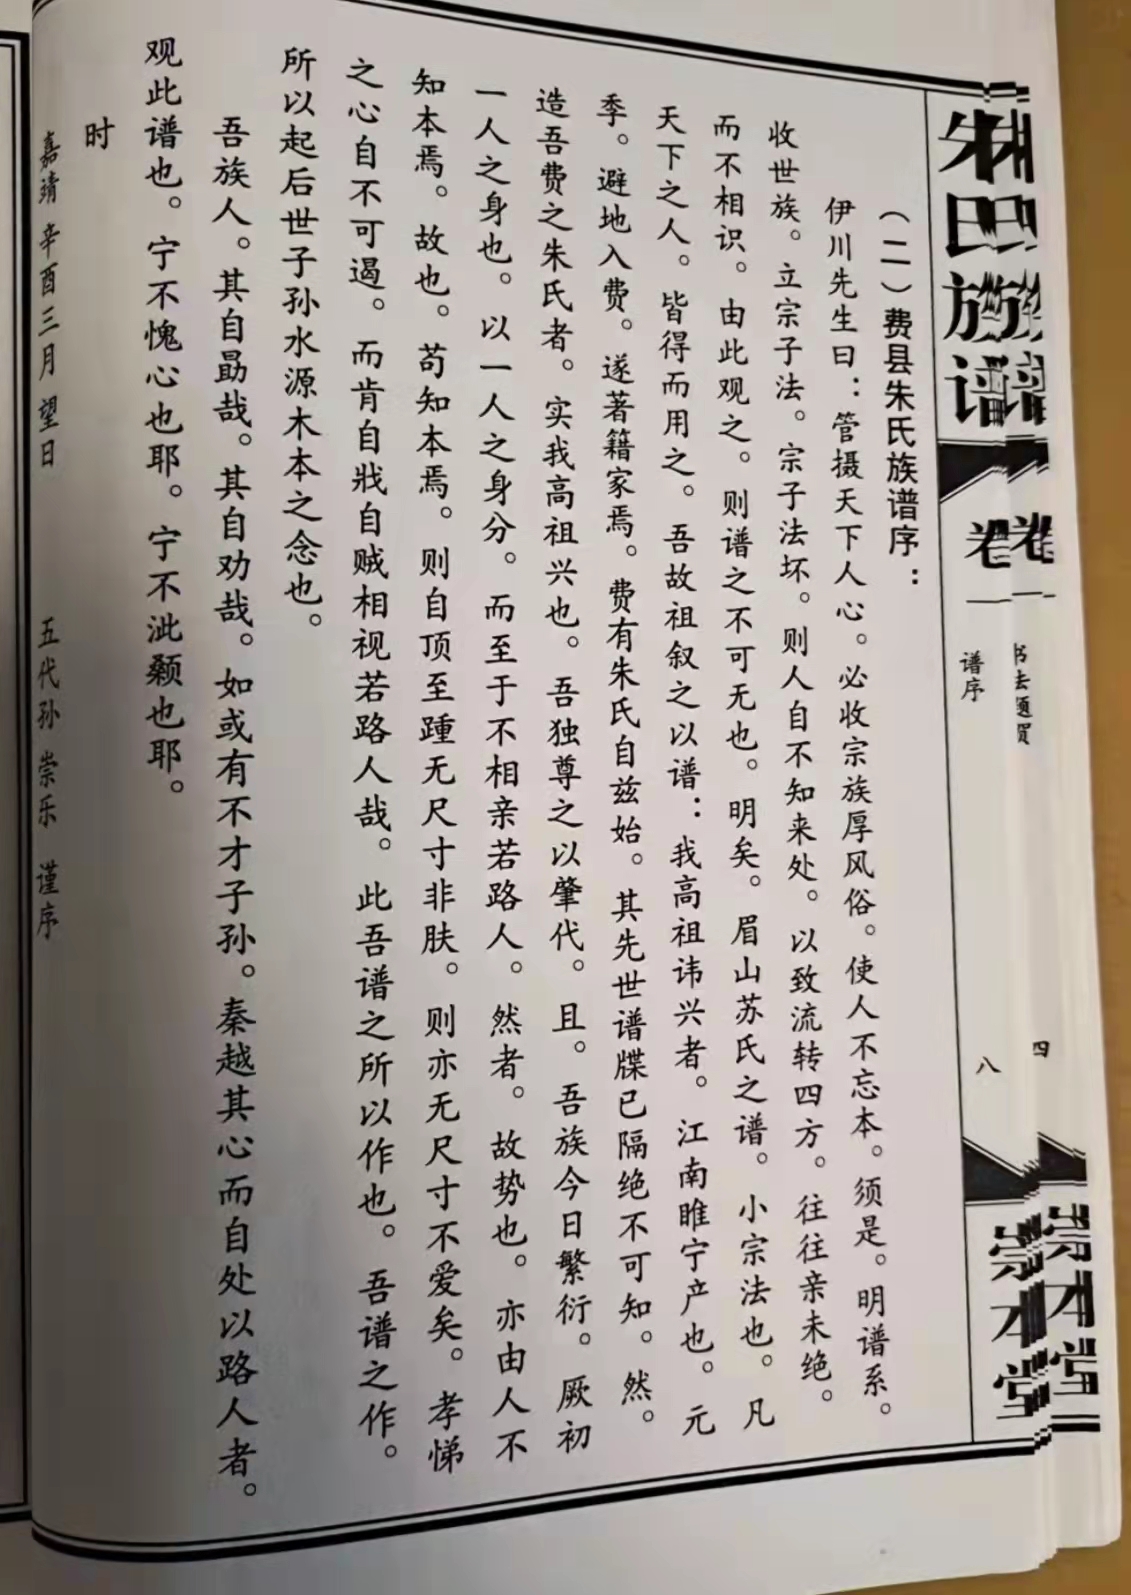 朱氏族谱
卷一
谱序
八
宗本堂
书法题贺
四
（二）费县朱氏族谱序：
伊川先生曰：管摄天下人心。必收宗族厚风俗。使人不忘本。须是。明谱系。
收世族。立宗子法。宗子法坏。则人自不知来处。以致流转四方。往往亲未绝。
而不相识。由此观之。则谱之不可无也。明矣。眉山苏氏之谱。小宗法也。凡
天下之人。皆得而用之。吾故祖叙之以谱：我高祖讳兴者。江南睢宁产也。元
季。避地入费。遂著籍家焉。费有朱氏自兹始。其先世谱牒已隔绝不可知。然。
造吾费之朱氏者。实我高祖兴也。吾独尊之以肇代。且。吾族今日繁衍。厥初
一人之身也。以一人之身分。而至于不相亲若路人。然者。故势也。亦由人不
知本焉。故也。苟知本焉。则自顶至踵无尺寸非肤。则亦无尺寸不爱矣。孝悌
之心自不可遏。而肯自戕自贼相视若路人哉。此吾谱之所以作也。吾谱之作。
所以起后世子孙水源木本之念也。
吾族人。其自勗哉。其自劝哉。如或有不才子孙。秦越其心而自处以路人者。
观此谱也。宁不愧心也耶。宁不泚颡也耶。
时
嘉靖辛酉三月望日 五代孙 崇乐 谨序